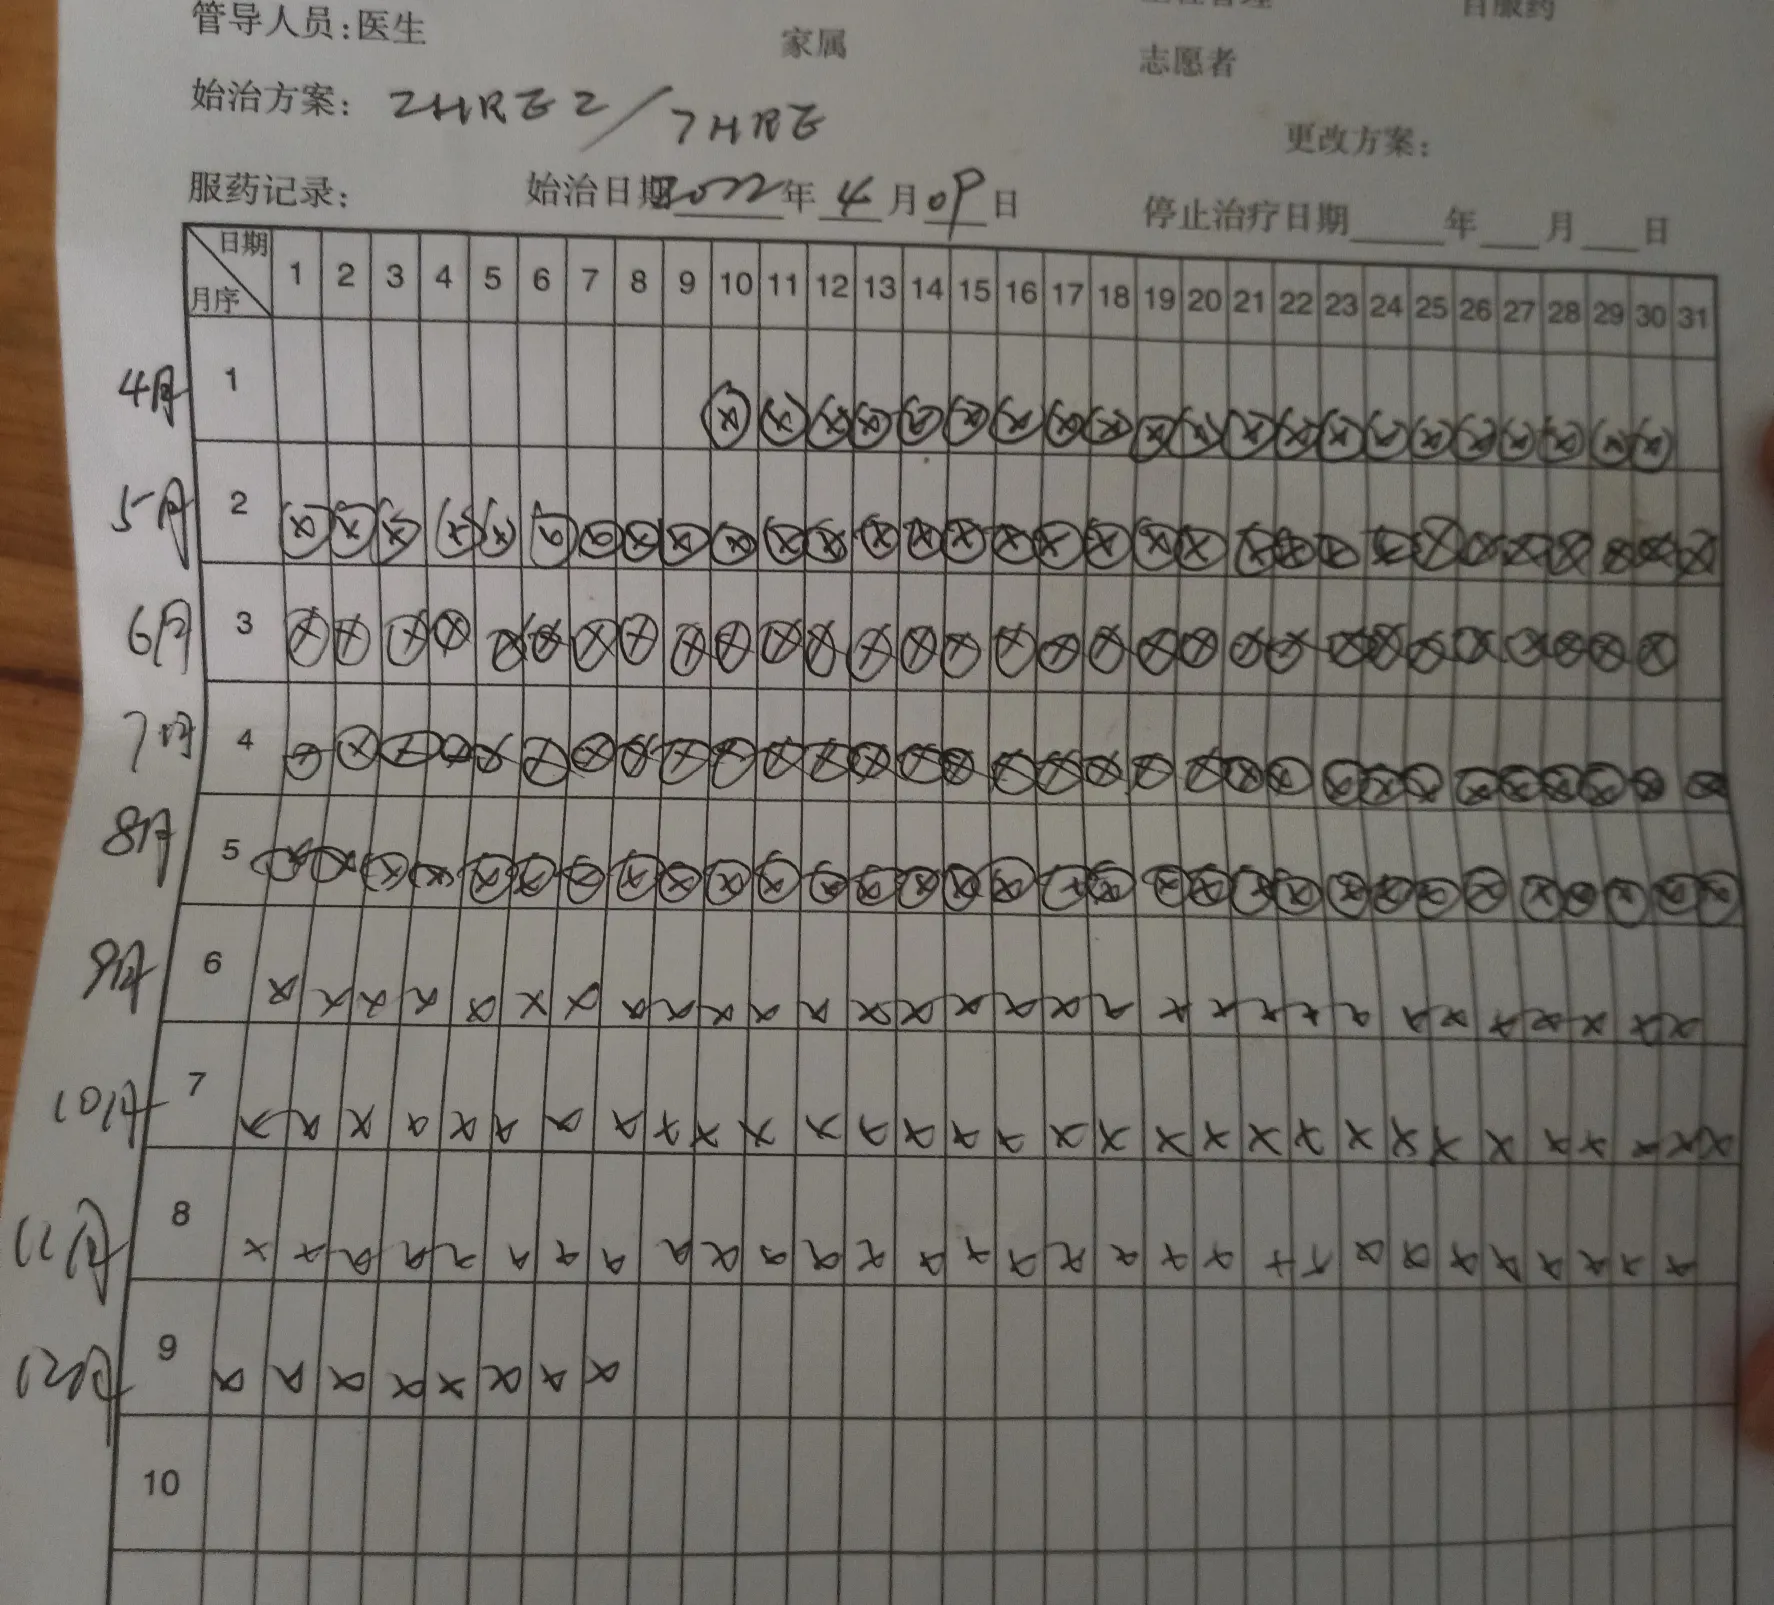 管导人员:医生 家属 志愿者
始治方案: 2HREZ/7HRE 更改方案:
服药记录: 始治日期2022年4月09日 停止治疗日期____年___月___日
日期 1 2 3 4 5 6 7 8 9 10 11 12 13 14 15 16 17 18 19 20 21 22 23 24 25 26 27 28 29 30 31
月序
4月 1
5月 2
6月 3
7月 4
8月 5
9月 6
10月 7
11月 8
12月 9
10